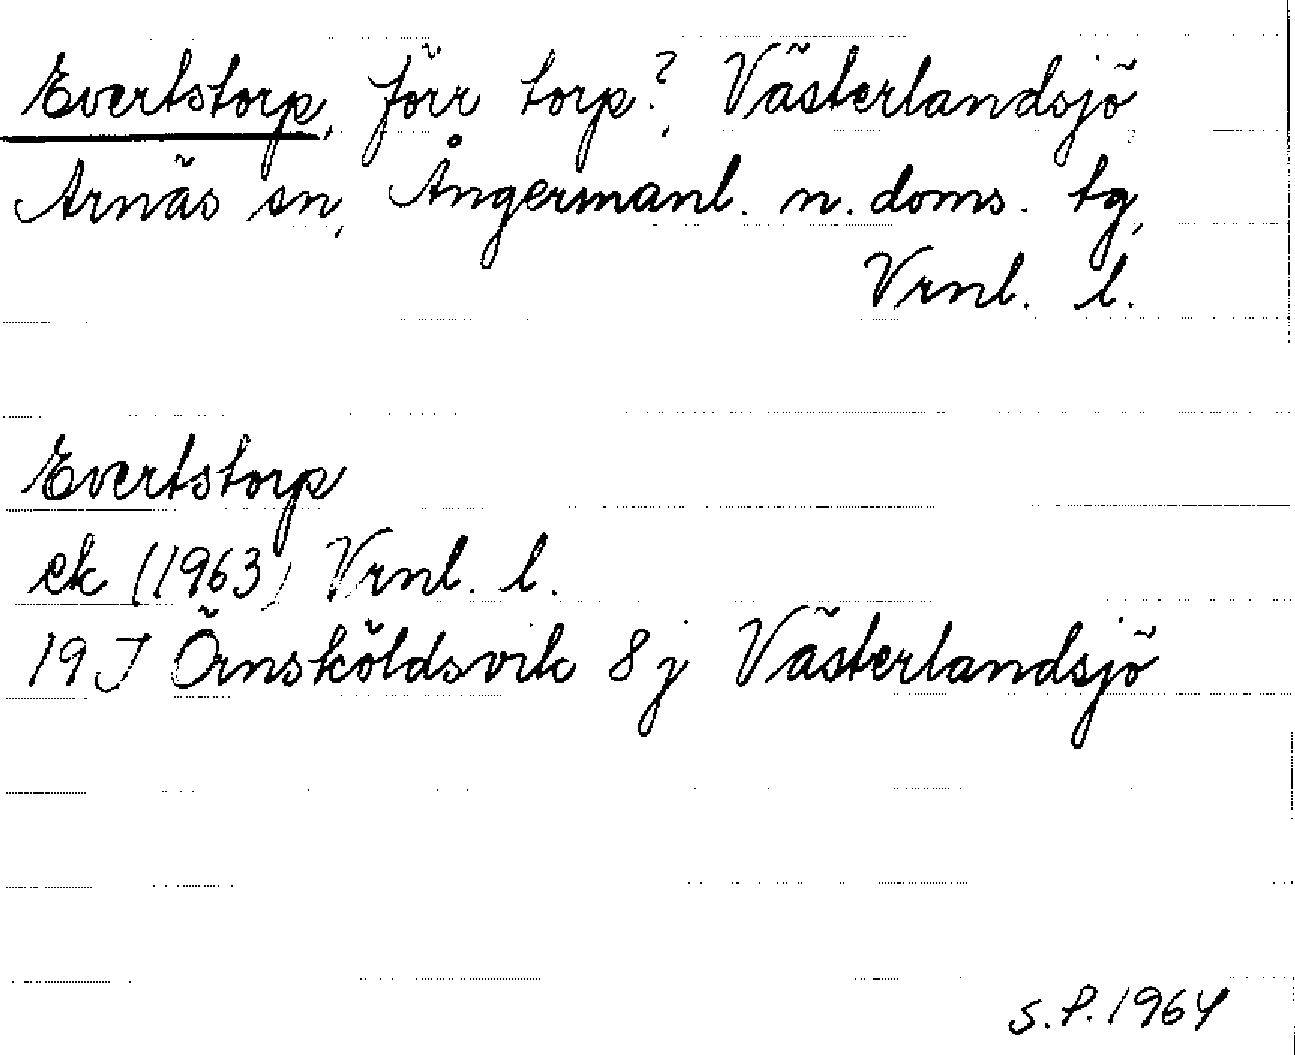 Evertstorp, förr torp?, Västerlandsjö,
Arnäs sn, Ångermanl. n. doms. tg,
Vrnl. l.
Evertstorp
ek (1963) Vrnl. l.
19J Örnsköldsvik 8j Västerlandsjö
S.P. 1964